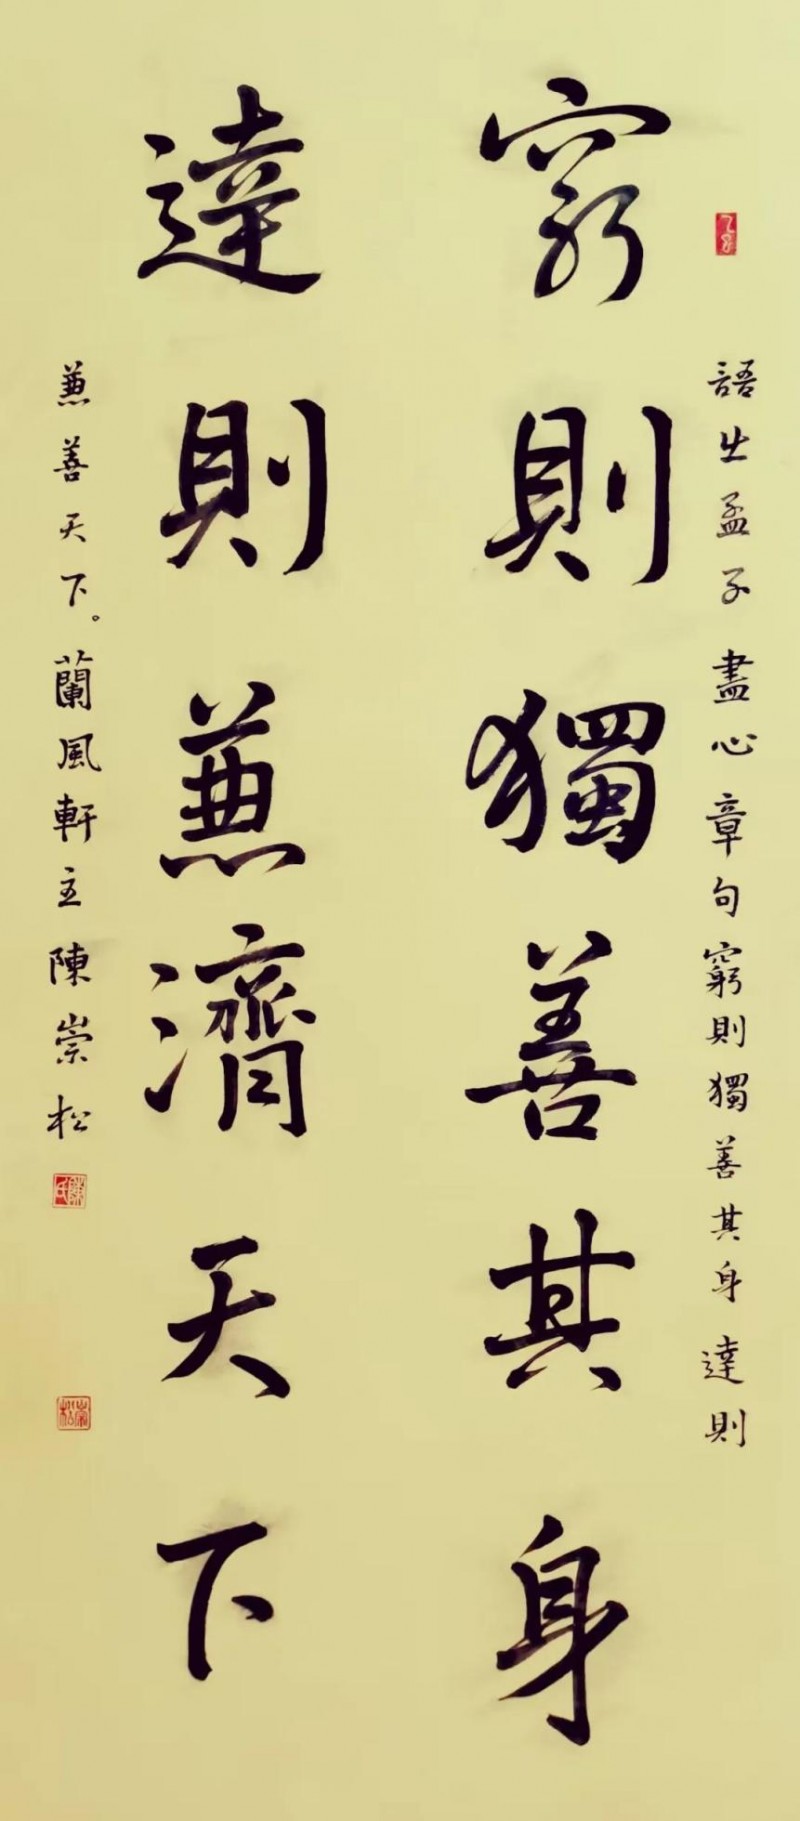 窮則獨善其身
達則兼濟天下
語出孟子盡心章句窮則獨善其身達則
兼善天下。蘭風軒主陳崇松
陳氏
崇松